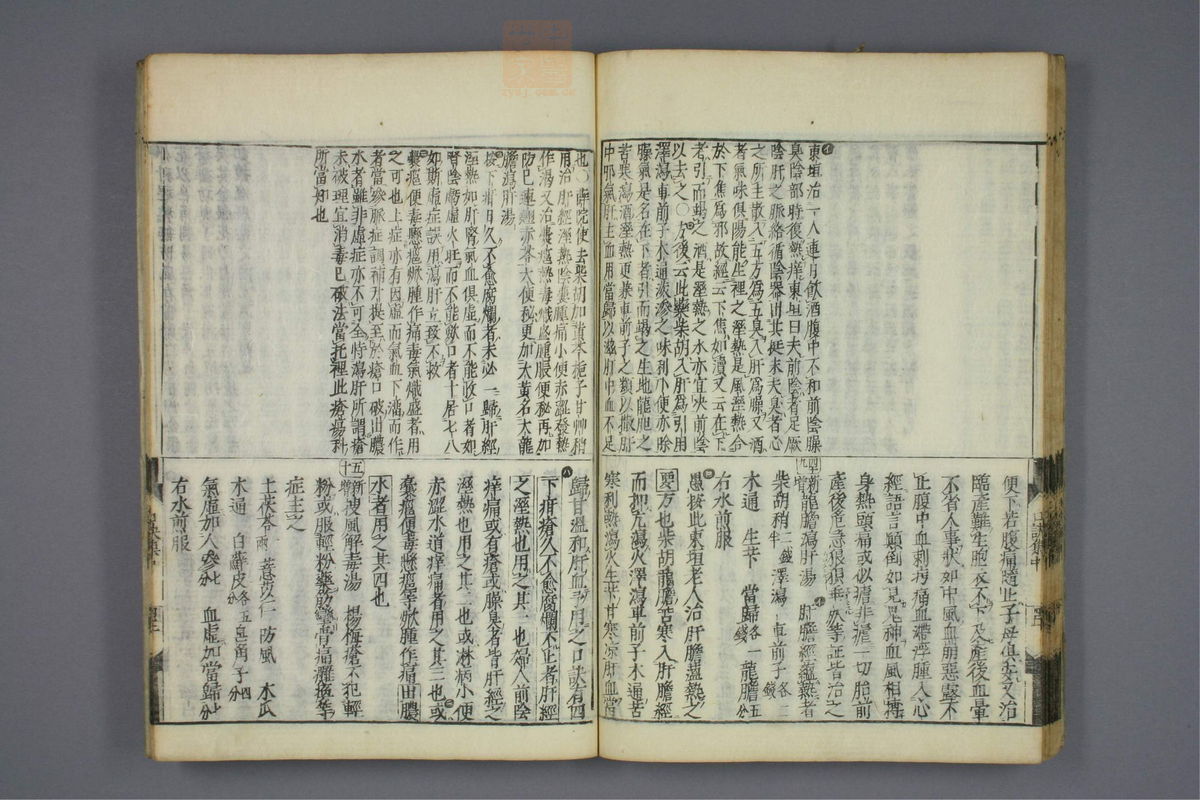 東垣治一人連月飲酒腹中不和前陰臊
臭陰部時復熱痒東垣曰夫前陰者足厥
陰肝之脉絡循陰器出其挺末夫臭者心
之所主散入五方為五臭入肝為臊又酒
者氣味俱陽能生裡之溼熱是風溼熱合
於下焦為邪故經云下焦如瀆又云在下
者引而竭之酒是溼熱之水亦宜决前陰
以去之〇方後云此藥柴胡入肝為引用
澤瀉車前子木通淡滲之味利小便亦除
臊氣是名在下者引而竭之生地龍胆之
苦寒瀉酒溼熱更兼車前子之類以撤肝
中邪氣肝主血用當歸以滋肝中血不足
便下若腹痛隨止子母俱安又治
臨產難生胞衣不下及產後血暈
不省人事狀如中風血崩惡露不
止腹中血刺㽲痛血滯浮腫入心
經語言顛倒如見鬼神血風相搏
身熱頭痛或似瘧非瘧一切胎前
產後危急狼狽垂死等証皆治之
龍膽瀉肝湯 肝膽經蘊熱者
柴胡稍二錢半 澤瀉 車前子各二錢
木通 生芐 當歸各一錢 龍膽五分
右水煎服
愚按此東垣老人治肝膽蘊熱之
要方也柴胡龍膽苦寒入肝膽經
而抑亢瀉火澤瀉車前子木通苦
寒利熱瀉火生芐甘寒凉肝血當
也〇薛院使去柴胡加黃芩梔子甘艸稍
用治肝經溼熱陰囊腫痛小便赤澀發熱
作渴又治囊癰熱毒熾盛腫脹便秘再加
防已連翹赤芩大便秘更加大黃名大龍
膽瀉肝湯
按下疳日久不愈腐爛者未必一歸肝經
溼熱如肝腎氣血俱虛而不能收口者如
腎陰虧虛火旺而不能斂口者十居七八
如斯虛症誤用瀉肝立致不救
囊癰便毒懸癰焮腫作痛毒氣熾盛者用
之可也上症亦有因虛而氣血下溜而作
者當參脉症調補升提至於瘡口破出膿
水者雖非虛症亦不可全恃瀉肝所謂瘡
未破理宜消毒已破法當托裡此瘡瘍科
所當知也
歸甘溫和肝血耳用之口訣有四
下疳瘡久不愈腐爛不止者肝經
之溼熱也用之其一也婦人前陰
痒痛或有瘡或臊臭者皆肝經之
溼熱也用之其二也或淋病小便
赤澀水道痒痛者用之其三也或
囊癰便毒懸癰等焮腫作痛出膿
水者用之其四也
五十 新增 搜風解毒湯 楊梅瘡不犯輕
粉或服輕粉藥筋攣骨痛癱瘓等
症主之
土茯苓一兩 薏苡仁 防風 木瓜
木通 白蘚皮各五分 皂角子四分
氣虛加人參七分 血虛加當歸七分
右水煎服